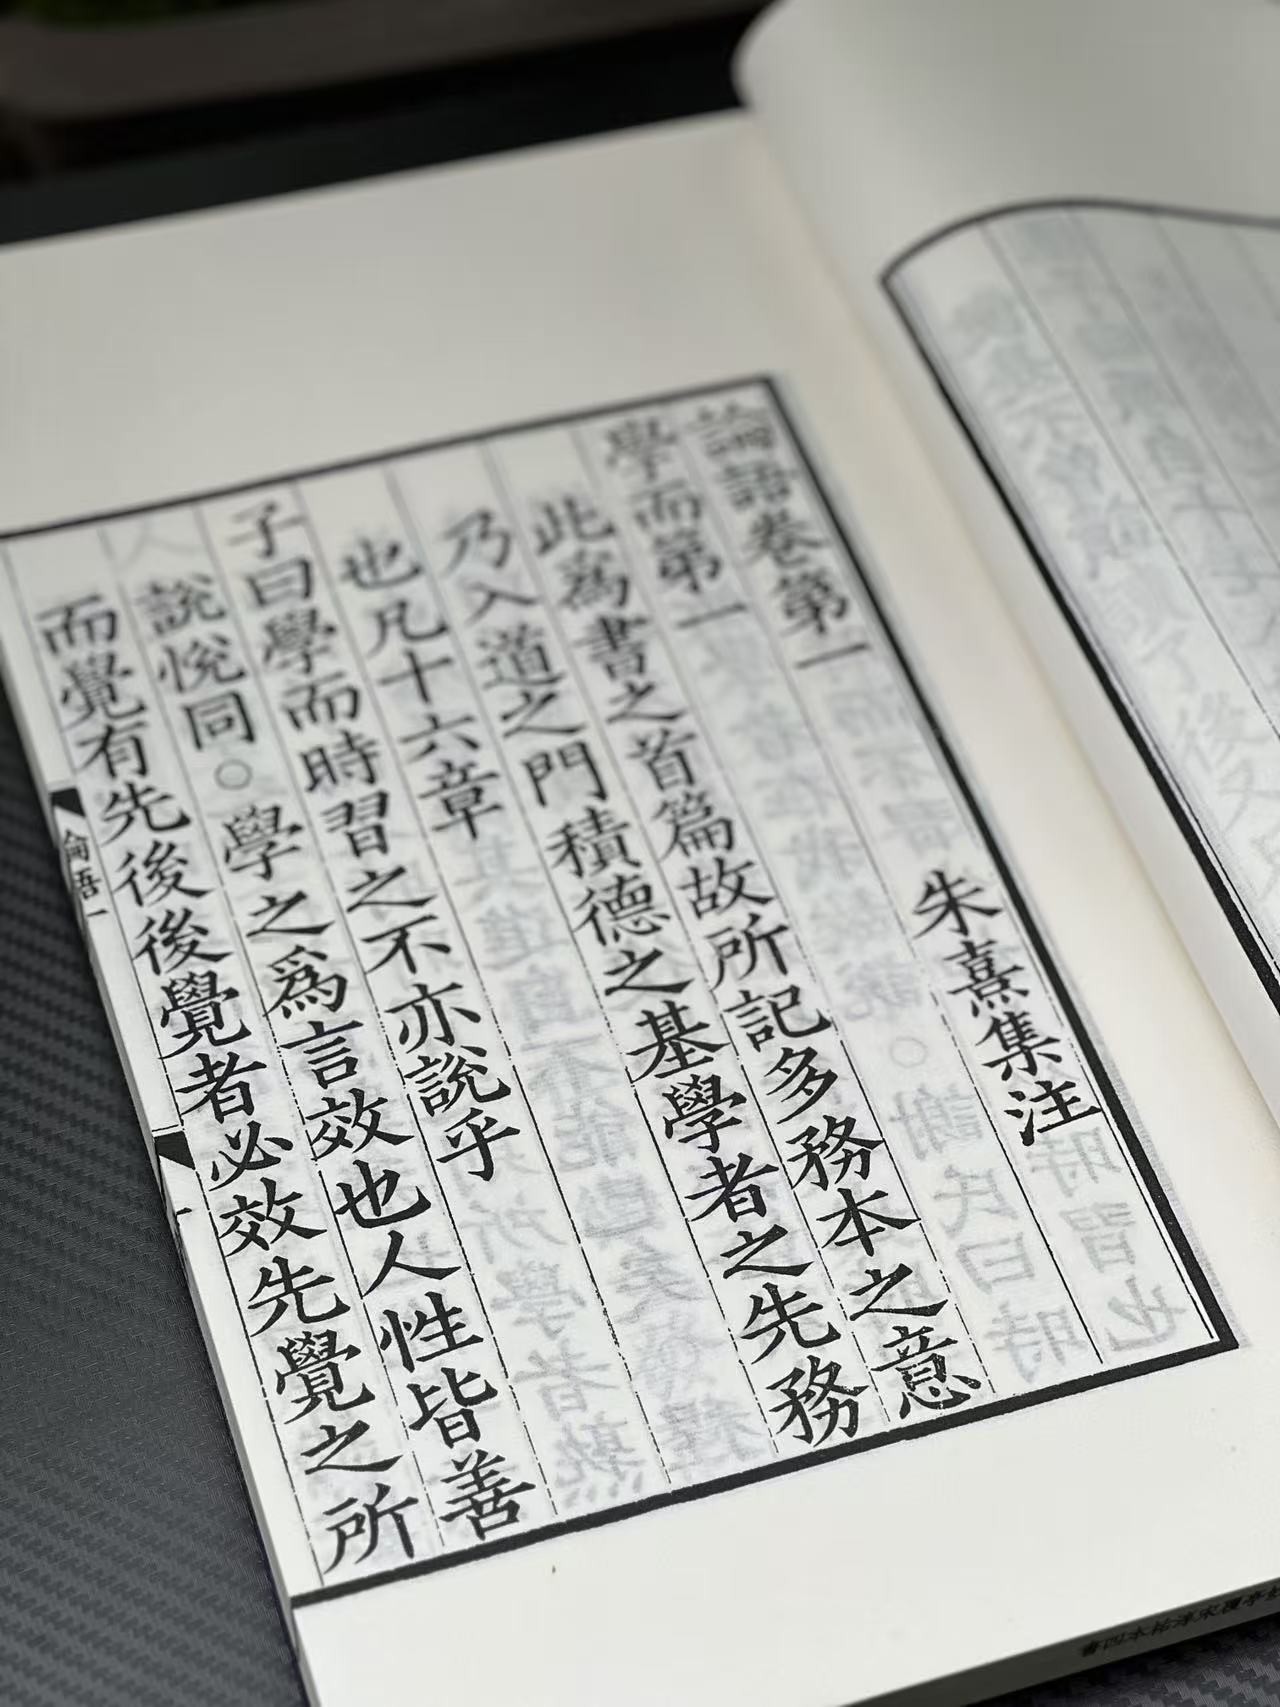 論語卷第一
朱熹集注
學而第一
此爲書之首篇故所記多務本之意
乃入道之門積德之基學者之先務
也凡十六章
子曰學而時習之不亦說乎
說悅同○學之爲言效也人性皆善
而覺有先後後覺者必效先覺之所
論語一